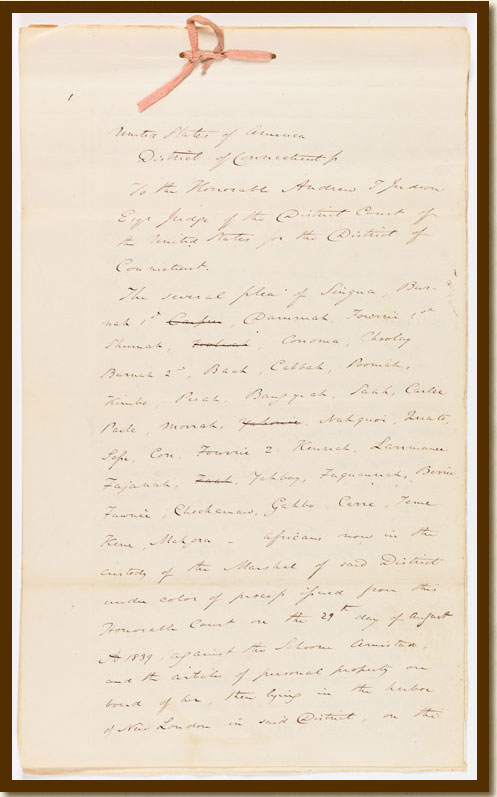 1
United States of America
District of Connecticut ss
To the Honorable Andrew T Judson
Esqr Judge of the District Court of
the United States for the District of
Connecticut.
The several plea of Singua, Bur-
nah 1st, Dammah, Fourrie 1st
Shumah, Conoma, Chooley
Burnah 2nd, Baah, Cabbah, Poomah,
Kimbo, Peeah, Bangyeah, Saah, Carlee
Parle, Morrah, Yahome, Nahquoi, Quato,
Sepe, Con, Fourrie 2, Kennah, Lammane
Fajanah, Yahboy, Faquannah, Berrie
Fawnee, Chockamaw, Gabbo, Carre, Teme
Kene, Mahgra - Africans now in the
custody of the Marshal of said District
under color of process issued from this
Honorable Court on the 29th day of August
AD 1839, against the Schooner Armistad,
and the articles of personal property on
board of her, then lying in the harbor
of New London in said District, on the